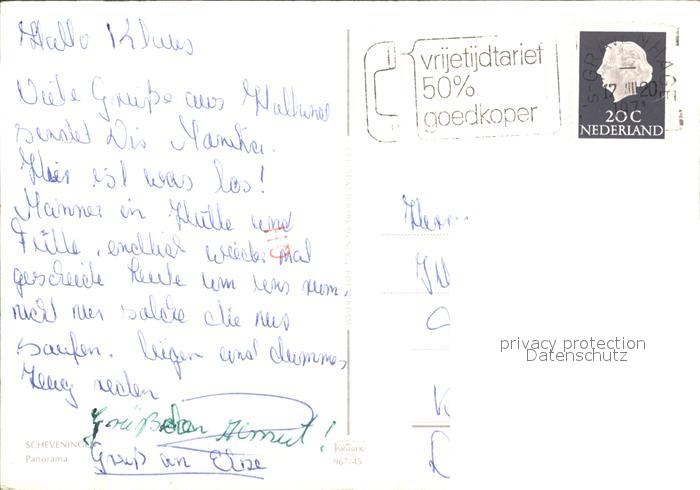 Hallo Klaus
Viele Grüße aus Holland
sendet Dir Monika.
Hier ist was los!
Männer in Hülle und
Fülle, endlich wieder mal
gescheide Leute um uns rum,
nicht nur solche die nur
saufen, lügen und dummes
Zeug reden
Grüß den Helmut!
Gruß an Elze
SCHEVENING
Panorama
967/45
vrijetijdtarief
50%
goedkoper
's-GRAVENHAGE
17 III 20
1971
20 C
NEDERLAND
Herrn
privacy protection
Datenschutz